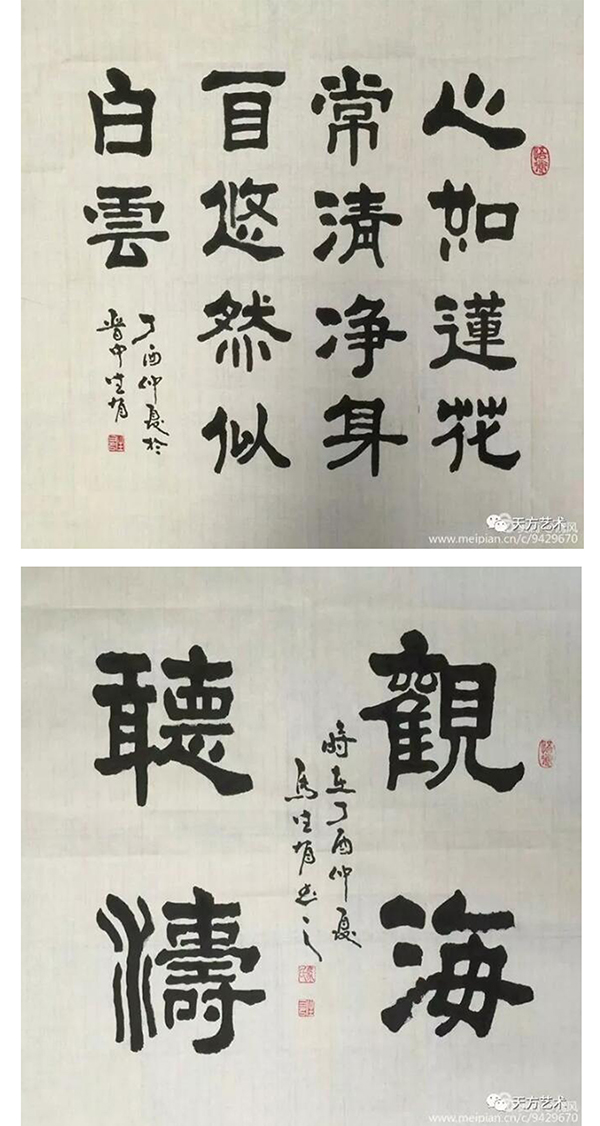 心如蓮花
常清净身
百悠然似
白雲
丁酉仲夏於
晋中
天方艺术
www.meipian.cn/c/9429670
觀海
聽濤
時在丁酉仲夏
馬
天方艺术
www.meipian.cn/c/9429670